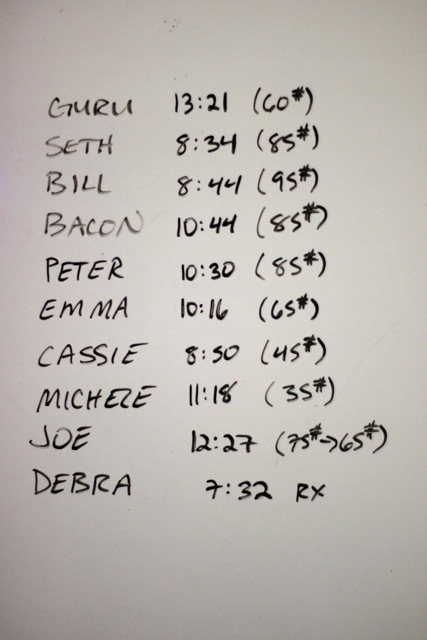 GURU 13:21 (60#)
SETH 8:34 (85#)
BILL 8:44 (95#)
BACON 10:44 (85#)
PETER 10:30 (85#)
EMMA 10:16 (65#)
CASSIE 8:50 (45#)
MICHELE 11:18 (35#)
JOE 12:27 (75#->65#)
DEBRA 7:32 RX